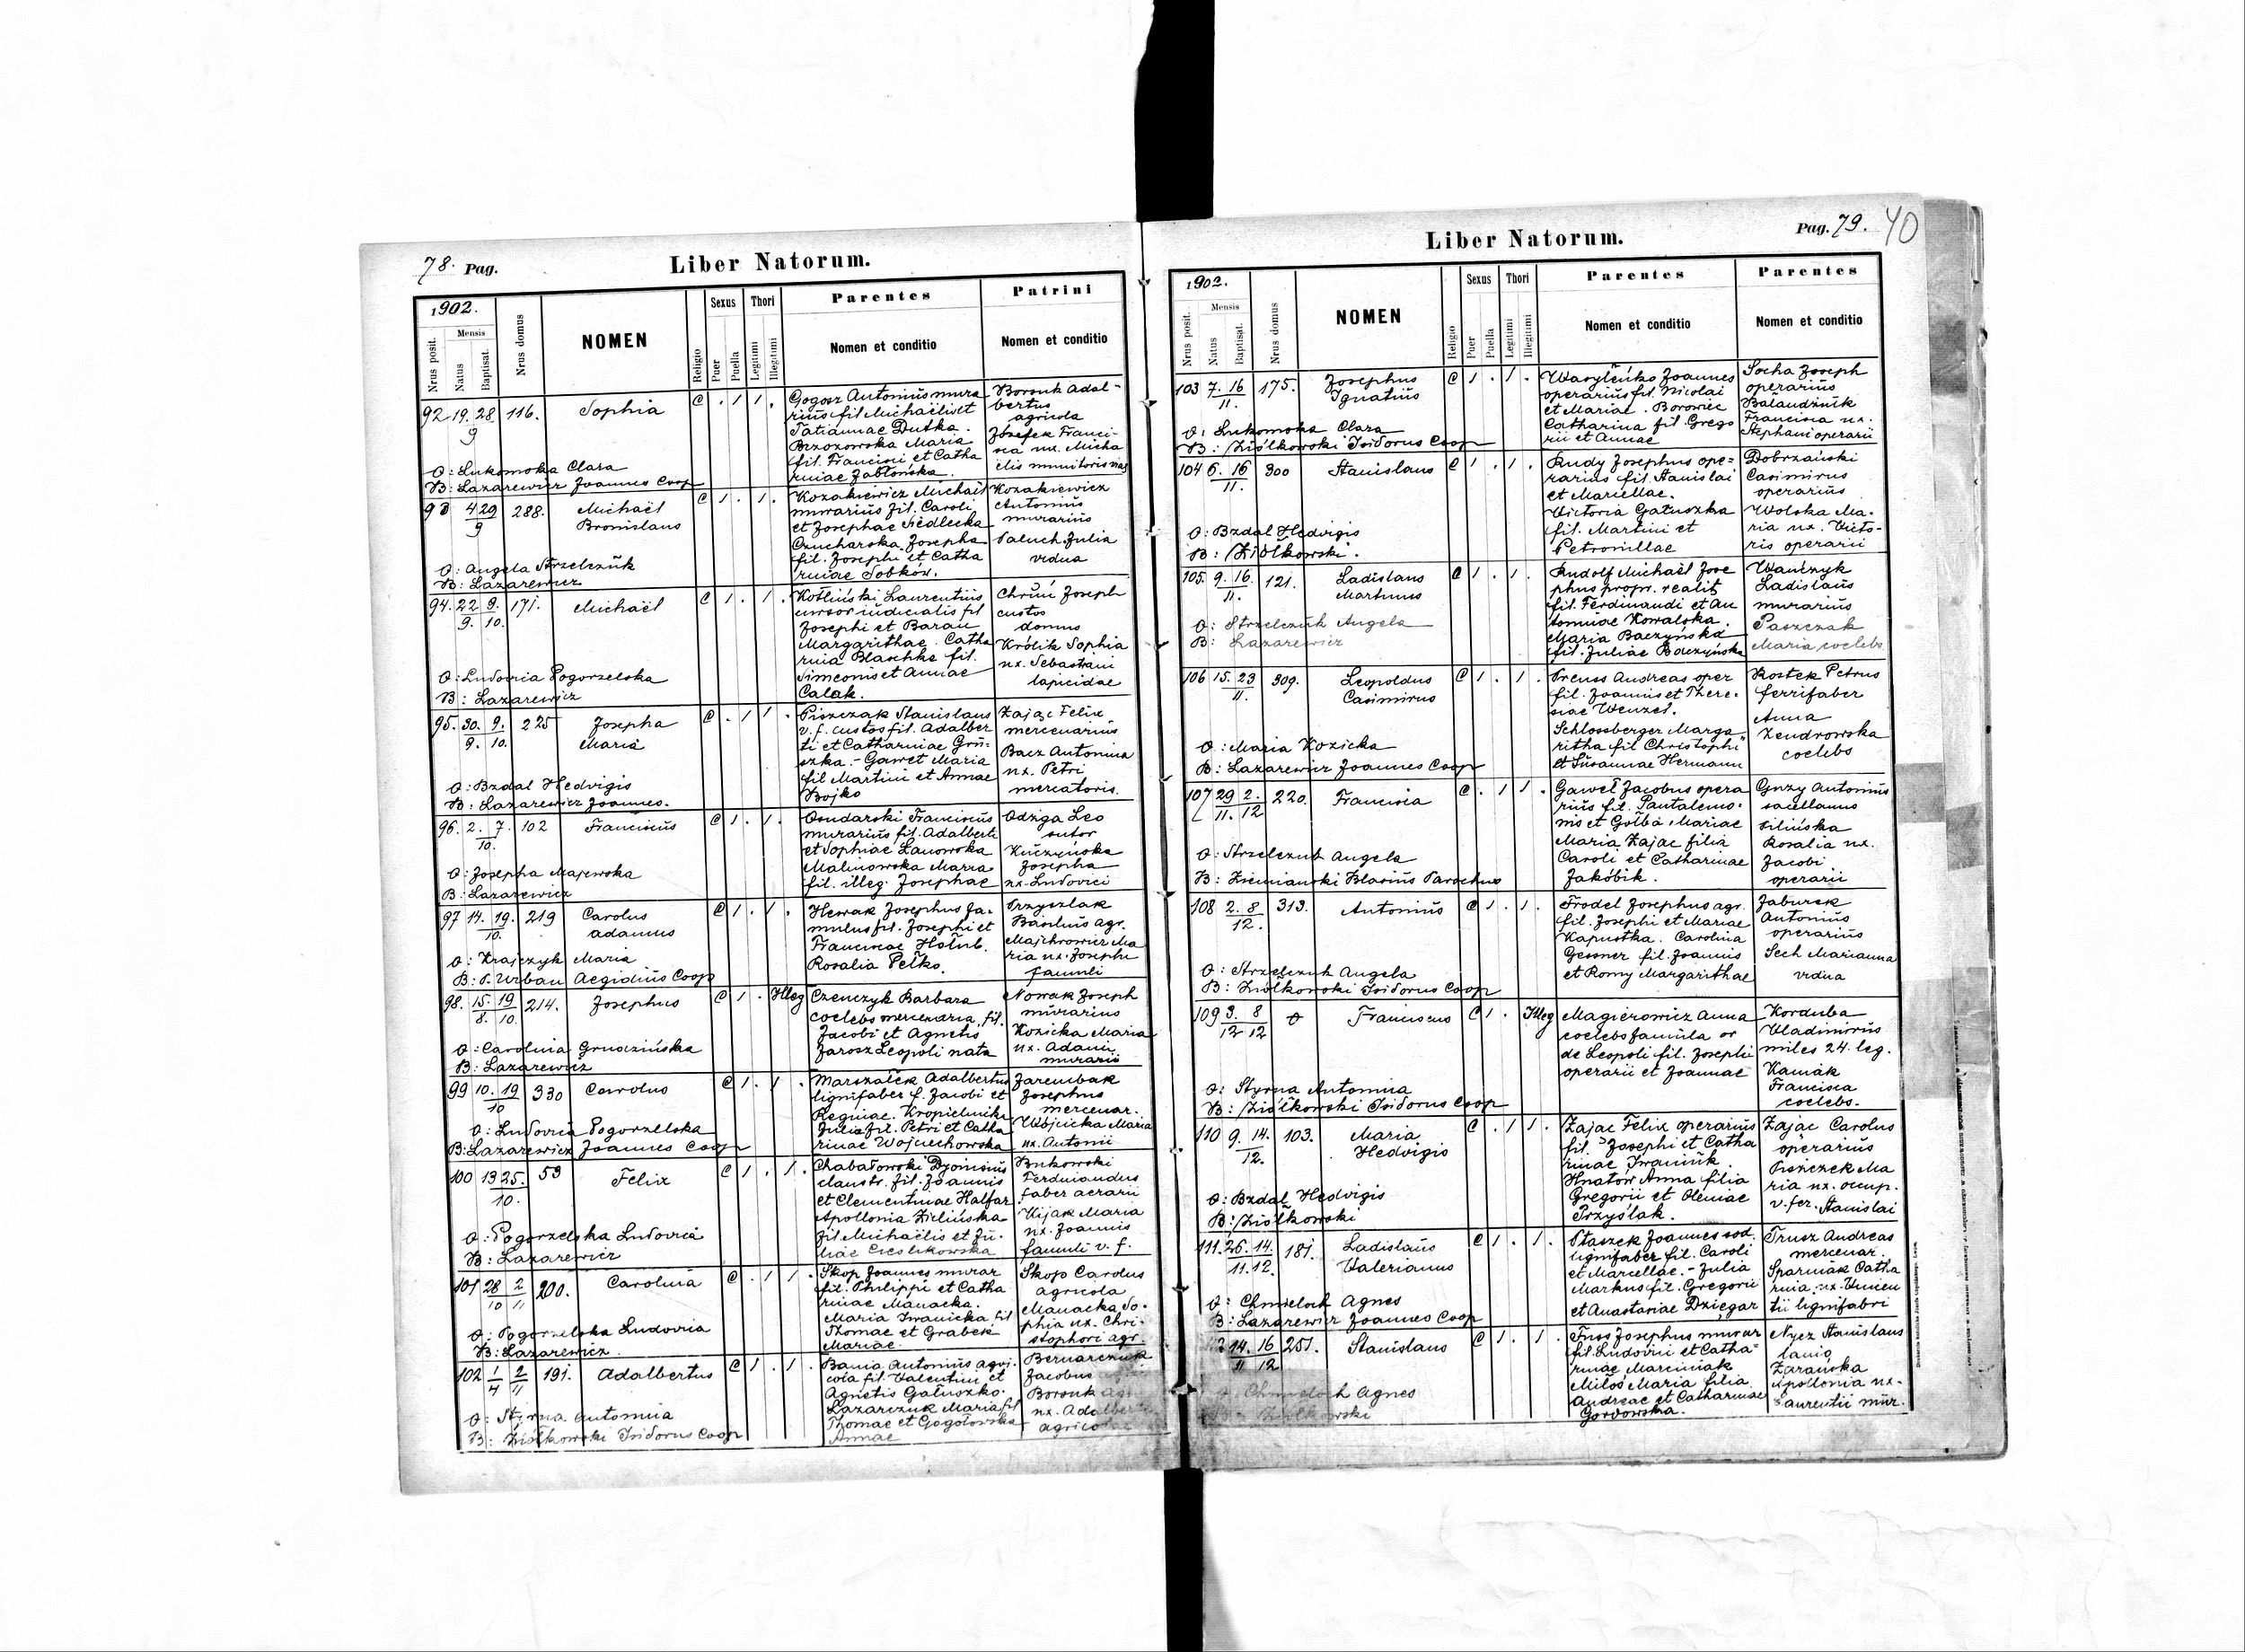 78. Pag.
Liber Natorum.
1902.
Nrus posit.
Mensis
Natus
Baptisat.
Nrus domus
NOMEN
Religio
Sexus
Puer
Puella
Thori
Legitimi
Illegitimi
Parentes
Nomen et conditio
Patrini
Nomen et conditio
92 19. 28 116. Sophia
9
Gogosz Antonius mura
rius fil Michaëlis et
Tatiannae Dutka.
Brzozowska Maria
fil. Francisci et Catha
rinae Zabłońska.
Boronk Adal-
bertus
agricola
Józefek Franci-
sca ux. Micha
O: Lukomska Clara
B: Lazarewicz Joannes Coop
93 4 29 288. Michaël
9 Bronislaus
Kozakiewicz Michaël
murarius fil. Caroli
et Josephae Siedlecka
Czucharska Josepha
fil. Josephi et Catha
rinae Sobków.
Kozakiewicz
Antonius
murarius
Paluch Julia
vidua
O: Angela Strzelczuk
B: Lazarewicz
94. 22 9. 171. Michaël
9. 10.
Kotliński Laurentius
cursor iudicialis fil
Josephi et Baran
Margarithae. Catha
rina Blaschke fil.
Simeonis et Annae
Calak.
Joseph
custos
domus
Królik Sophia
ux. Sebastiani
lapicidae
O: Ludovica Pogorzelska
B: Lazarewicz
95. 30. 9. 225 Josepha
9. 10. Maria
Piszczak Stanislaus
v. f. custos fil. Adalber
ti et Catharinae Gru=
szka. - Gaweł Maria
fil Martini et Annae
Bojko
Zając Felix
mercenarius
Bacz Antonina
ux. Petri
mercatoris.
O: Bzdal Hedvigis
B: Lazarewicz Joannes.
96. 2. 7. 102 Franciscus
10.
Osudarski Franciscus
murarius fil. Adalberti
et Sophiae Lanowska
Malinowska Maria
fil. illeg. Josephae
Odziga Leo
sutor
Kuczyńska
Josepha
ux. Ludovici
O: Josepha Majewska
B: Lazarewicz
97 14. 19. 219 Carolus
10. Adamus
Hewak Josephus fa-
mulus fil. Josephi et
Franciscae Hołub.
Rosalia Pełko.
Przyszlak
Basilius agr.
Majchrowicz Ma
ria ux. Josephi
famuli
O: Krajczyk Maria
B: P. Urban Aegidius Coop
98. 15. 19 214. Josephus
8. 10.
Illeg
Czenczyk Barbara
coelebs mercenaria, fil.
Jacobi et Agnetis
Jarosz Leopoli nata
Nowak Joseph
murarius
Kozicka Maria
ux. Adami
murarii
O: Carolina Grudzińska
B: Lazarewicz
99 10. 19 330 Carolus
10
Marszałek Adalbertus
lignifaber f. Jacobi et
Reginae. Kropielnicka
Julia fil. Petri et Catha
rinae Wojciechowska
Zarembak
Josephus
mercenar.
Wójcicka Maria
ux. Antonii
O: Ludovica Pogorzelska
B: Lazarewicz Joannes Coop
100 13 25. 59 Felix
10.
Chabałowski Dyonisius
claustr. fil. Joannis
et Clementinae Halfar
Apollonia Zielińska
fil Michaëlis et Ju-
liae Cieslikowska
Bukowski
Ferdinandus
faber aerarii
Kijak Maria
ux. Joannis
famuli v. f.
O: Pogorzelska Ludovica
B: Lazarewicz
101 28 2 200. Carolina
10 11
Skop Joannes murar
fil. Philippi et Catha
rinae Manacka.
Maria Iwanicka fil
Thomae et Grabek
Mariae.
Skop Carolus
agricola
Manacka So-
phia ux. Chri-
stophori agr
O: Pogorzelska Ludovica
B: Lazarewicz
102 1 2 191. Adalbertus
4 11
Bania Antonius agri-
cola fil. Valentini et
Agnetis Gałuszko.
Lazarczuk Maria fil
Thomae et Gogołowska
Annae
Bernarczuk
Jacobus
Boronk
ux. Adalberti
O: Styrna Antonina
B: Ziółkowski Isidorus Coop
Liber Natorum.
Pag. 79. 40
1902.
Nrus posit.
Mensis
Natus
Baptisat.
Nrus domus
NOMEN
Religio
Sexus
Puer
Puella
Thori
Legitimi
Illegitimi
Parentes
Nomen et conditio
Parentes
Nomen et conditio
103 7. 16 175. Josephus
11. Ignatius
Wasyleńko Joannes
operarius fil. Nicolai
et Mariae. Borowiec
Catharina fil. Grego
rii et Annae
Socha Joseph
operarius
Bałandziuk
Francisca ux.
Stephani operarii
O: Lukomska Clara
B: Ziółkowski Isidorus Coop
104 6. 16 300 Stanislaus
11.
Rudy Josephus ope=
rarius fil. Stanislai
et Mariellae.
Victoria Gałuszka
fil. Martini et
Petronillae
Dobrzański
Casimirus
operarius
Wolska Ma-
ria ux. Victo-
ris operarii
O: Bzdal Hedvigis
B: Ziółkowski.
105. 9. 16. 121. Ladislaus
11. Martinus
Rudolf Michaël Jose
phus propr. realit
fil. Ferdinandi et An
toninae Kowalska.
Maria Baczyńska
fil. Juliae Baczyńska
Wańczyk
Ladislaus
murarius
Paszczak
Maria coelebs.
O: Strzelczuk Angela
B: Lazarewicz
106 15. 23 309. Leopoldus
11. Casimirus
Preuss Andreas oper
fil. Joannis et There-
siae Wenzel.
Schlossberger Marga
ritha fil Christophi
et Susannae Hermann
Kostek Petrus
ferrifaber
Anna
Zendrowska
coelebs
O: Maria Kozicka
B: Lazarewicz Joannes Coop
107 29 2. 220. Francisca
11. 12
Gaweł Jacobus opera
rius fil. Pantalemo-
nis et Gołba Mariae
Maria Zając filia
Caroli et Catharinae
Jakóbik.
Gnzy Antonius
sacellanus
Silińska
Rosalia ux.
Jacobi
operarii
O: Strzelczuk Angela
B: Ziemiański Blasius Parochus
108 2. 8 313. Antonius
12.
Frodel Josephus agr.
fil. Josephi et Mariae
Kapustka. Carolina
Gessner fil. Joannis
et Romy Margarithae
Zaburek
Antonius
operarius
Sech Marianna
vidua
O: Strzelczuk Angela
B: Ziółkowski Isidorus Coop
109 3. 8 0 Franciscus
12 12
Illeg
Magierowicz Anna
coelebs famula or
de Leopoli fil. Josephi
operarii et Joannae
Korduba
Vladimirus
miles 24. leg.
Kamak
Francisca
coelebs.
O: Styrna Antonina
B: Ziółkowski Isidorus Coop
110 9. 14. 103. Maria
12. Hedvigis
Zając Felix operarius
fil. Josephi et Catha
rinae Iwaniuk.
Hnatów Anna filia
Gregorii et Oleniae
Przyślak.
Zając Carolus
operarius
Piszczek Ma
ria ux. occup.
v. fer. Stanislai
O: Bzdal Hedvigis
B: Ziółkowski
111. 26. 14. 181. Ladislaus
11. 12. Valerianus
Ptaszek Joannes sod.
lignifaber fil. Caroli
et Marcellae. - Julia
Markus fil. Gregorii
et Anastasiae Dziegar
Trusz Andreas
mercenar.
Sparniak Catha
rina ux. Vincen
tii lignifabri
O: Chmieloch Agnes
B: Lazarewicz Joannes Coop
14. 16 251. Stanislaus
11 12
Fuss Josephus murar
fil. Ludovici et Catha-
rinae Marciniak
Miłoś Maria filia
Andreae et Catharinae
Gordowska.
Nycz Stanislaus
lanio
Zarańska
Apollonia ux.
Laurentii mur.
Chmieloch Agnes
Ziółkowski